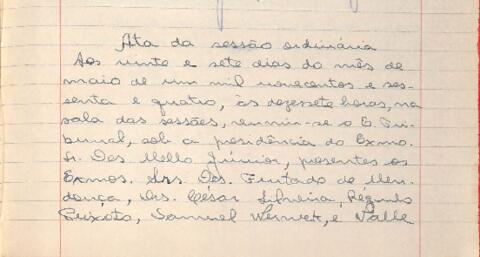 Ata da sessão ordinária
Aos vinte e sete dias do mês de
maio de um mil novecentos e ses-
senta e quatro, às dezessete horas, na
sala das sessões, reuniu-se o E. Tri-
bunal, sob a presidência do Exmo.
Sr. Des. Mello Júnior, presentes os
Exmos. Srs. Des. Furtado de Men-
donça, Drs. César Silveira, Régulo
Peixoto, Samuel Werneck, e Valle